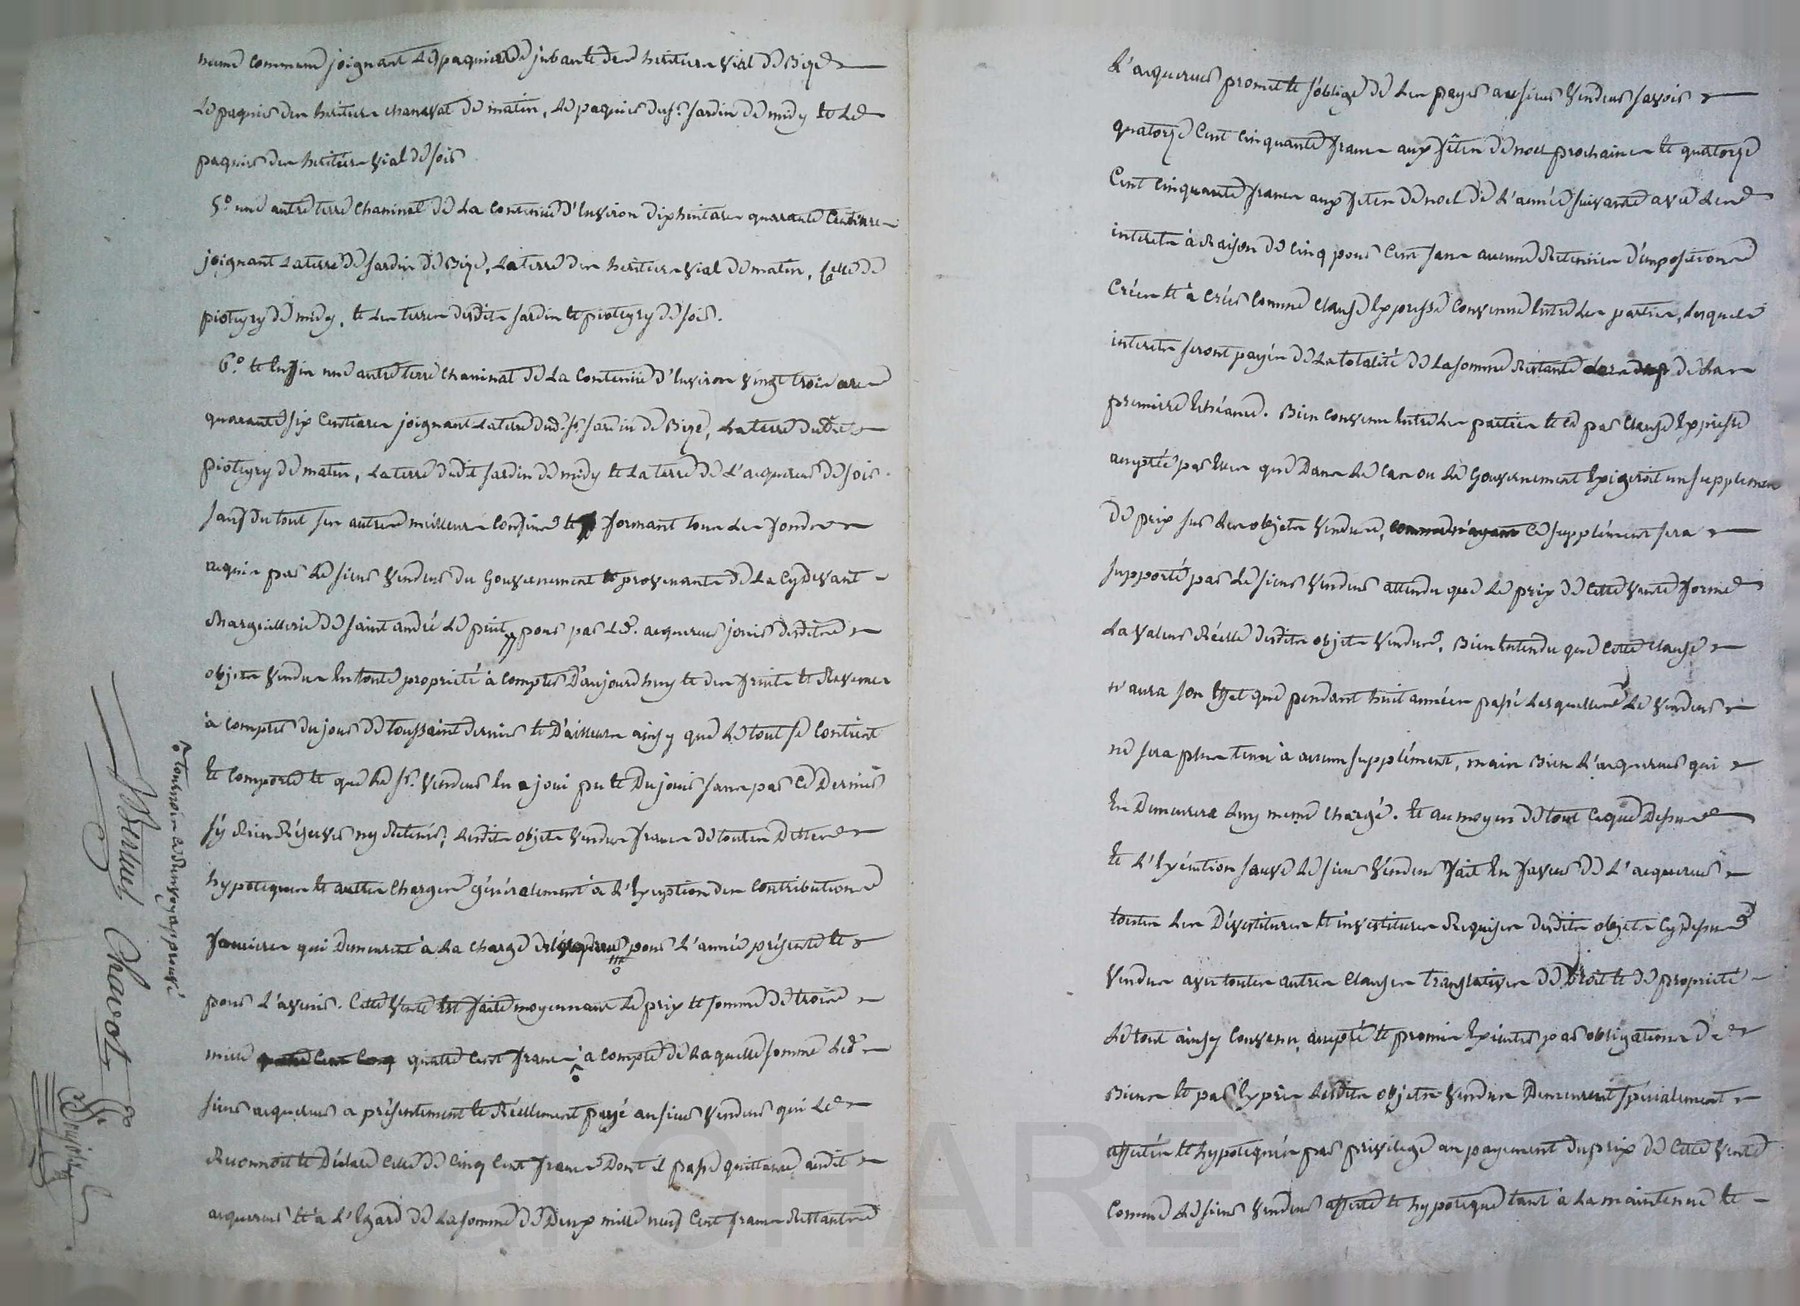 meme commune joignant les paquiers de jubante des heritiers Vial de Bize
Le paquier des heritiers chanaval de matin, Le paquier du sr. Jardin de midy et Le
paquier des heritiers Vial de soir
5.° une autre terre Chaninal de La Contenue d'Environ dix huit ares quarante Centiares
joignant La terre de Jardin de Bize, La terre des heritiers Vial de matin, Celle de
pioteyry de midy, et Les terres desdits Jardin et pioteyry de soir.
6.° et Enfin une autre terre Chaninal de La Contenue d'Environ Vingt trois ares
quarante six Centiares joignant La terre dud. sr. Jardin de Bize, La terre dudit
pioteyry de matin, La terre dudit Jardin de midy et La terre de L'acquereur de soir.
sauf du tout ses autres meilleurs Confins et formant tous Les fonds
acquis par Le sieur Vendeur du Gouvernement et provenants de La Cydevant
Marguillerie de Saint andré Le puit pour par Led. acquereur jouir desdits
objets Vendus En toute propriété à Compter D'aujourd'huy et des fruits et Revenus
à Compter du jour de toussaint dernier et D'ailleurs ainsy que Le tout se Contient
et Comporte et que Le sr. Vendeur En a joui pu et Du jouir sans par Ce Dernier
s'y Rien Réserver ny Retenir, Lesdits objets Vendus francs de toutes Dettes
hypoteques et autres Charges généralement à L'Exeption des Contributions
foncieres qui Demeurent à La Charge de l'acquereur pour L'année présente et
pour L'avenir. Cette Vente Est faite moyennant Le prix et somme de trois
mille quatre Cent francs à Compte de Laquelle somme Led.
sieur acquereur a présentement et Réellement payé au sieur Vendeur qui Le
Reconnoit et Déclare Celle de Cinq Cent francs Dont il passe quittance audit
acquereur et à L'Egard de La somme de Deux mille neuf Cent francs Restante
tournoir Renvoy approuvé
Chavot
L'acquereur promet et s'oblige de Les payer au sieur Vendeur savoir
quatorze Cent Cinquante francs aux fêtes de noel prochaines et quatorze
Cent Cinquante francs aux fetes de noel de L'année suivante avec Les
interets à Raison de Cinq pour Cent sans aucune Retenue d'impositions
Créés et à Créer Comme Clause Expresse Convenue Entre Les parties, Lesquels
interets seront payés de La totalité de La somme Restante de La
premiere Echéance. Bien Convenu Entre Les parties et Ce par Clause Expresse
acceptée par Eux que Dans Le Cas ou Le Gouvernement Exigeroit un supplement
de prix sur Les objets Vendus, Ce supplément sera
supporté par Le sieur Vendeur attendu que Le prix de Cette Vente forme
La Valeur Réelle desdits objets Vendus, Bien Entendu que Cette Clause
n'aura son Effet que pendant huit années passé Lesquelles Le Vendeur
ne sera plus tenu à aucun supplément, mais Bien L'acquereur qui
En Demeurera Luy meme Chargé. Et au moyen de tout Ceque Dessus
et L'Exécution sauve Le sieur Vendeur fait En faveur de L'acquereur
toutes Les Dévestitures et investitures Requises desdits objets Cy dessus
Vendus avec toutes autres Clauses translatives de Droit et de propriété
Le tout ainsy Convenu, accepté et promis Exécuter par obligations de
Biens et par Exprès Lesdits objets Vendus Demeurent spécialement
affectés et hypotequés par privilege au payement du prix de Cette Vente
Comme Le sieur Vendeur affecte et hypoteque tant à La maintenue et